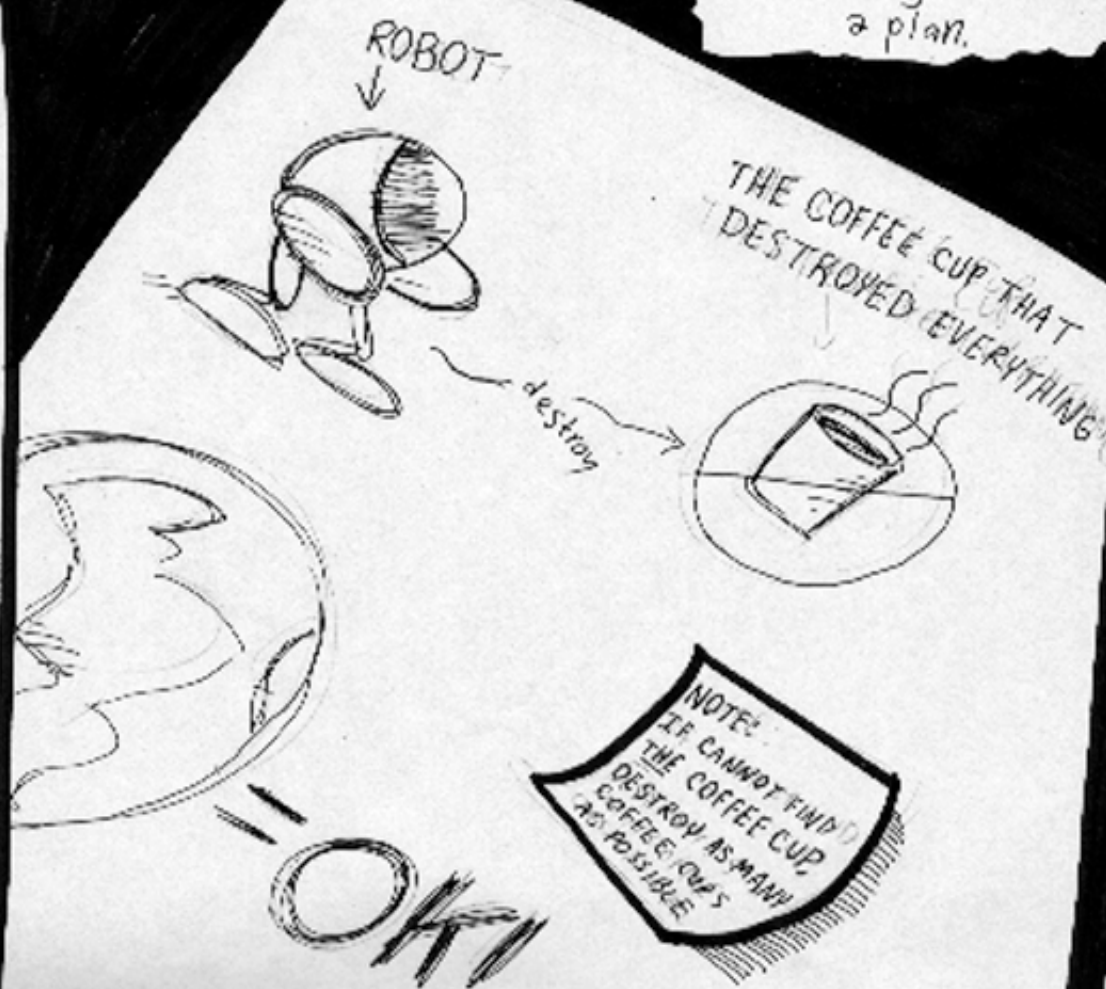 a plan.
ROBOT
THE COFFEE CUP THAT
DESTROYED EVERYTHING
destroy
NOTE:
IF CANNOT FIND
THE COFFEE CUP,
DESTROY AS MANY
COFFEE CUPS
AS POSSIBLE
= OK!